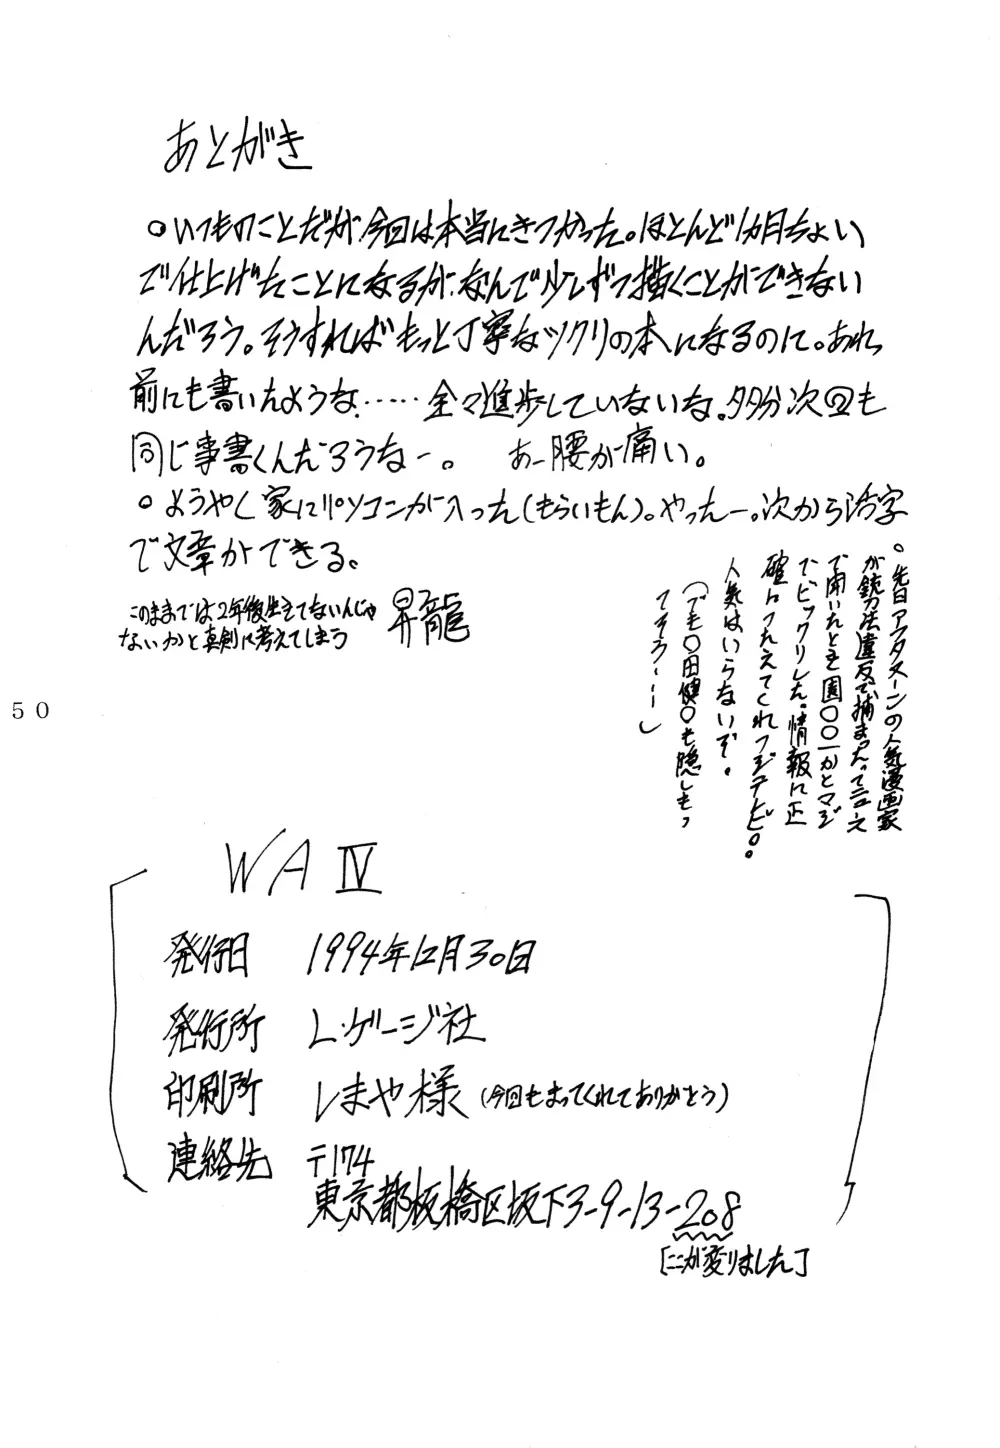 あとがき
○いつものことだが今回は本当にきつかった。ほとんど1カ月ちょい
で仕上げたことになるが、なんで少しずつ描くことができない
んだろう。そうすればもっと丁寧なツクリの本になるのに。あれ
前にも書いたような……全々進歩していないな。多分次回も
同じ事書くんだろうなー。 あー腰が痛い。
○ようやく家にパソコンが入った(もらいもん)。やったー。次から活字
で文章ができる。
このままでは2年後生きてないんじゃ
ないかと真剣に考えてしまう
昇龍
○先日アフタヌーンの人気漫画家
が銃刀法違反で捕まったってニュース
で聞いたとき園○○一かとマジ
でビックリした。情報は正
確につたえてくれフジテレビ。
人気はいらないぞ。
(でも○田健○も隠しもっ
てそうーー)
50
WA Ⅳ
発行日 1994年12月30日
発行所 L・ゲージ社
印刷所 しまや様 (今回もまってくれてありがとう)
連絡先 〒174
東京都板橋区坂下3-9-13-208
[ここが変りました]